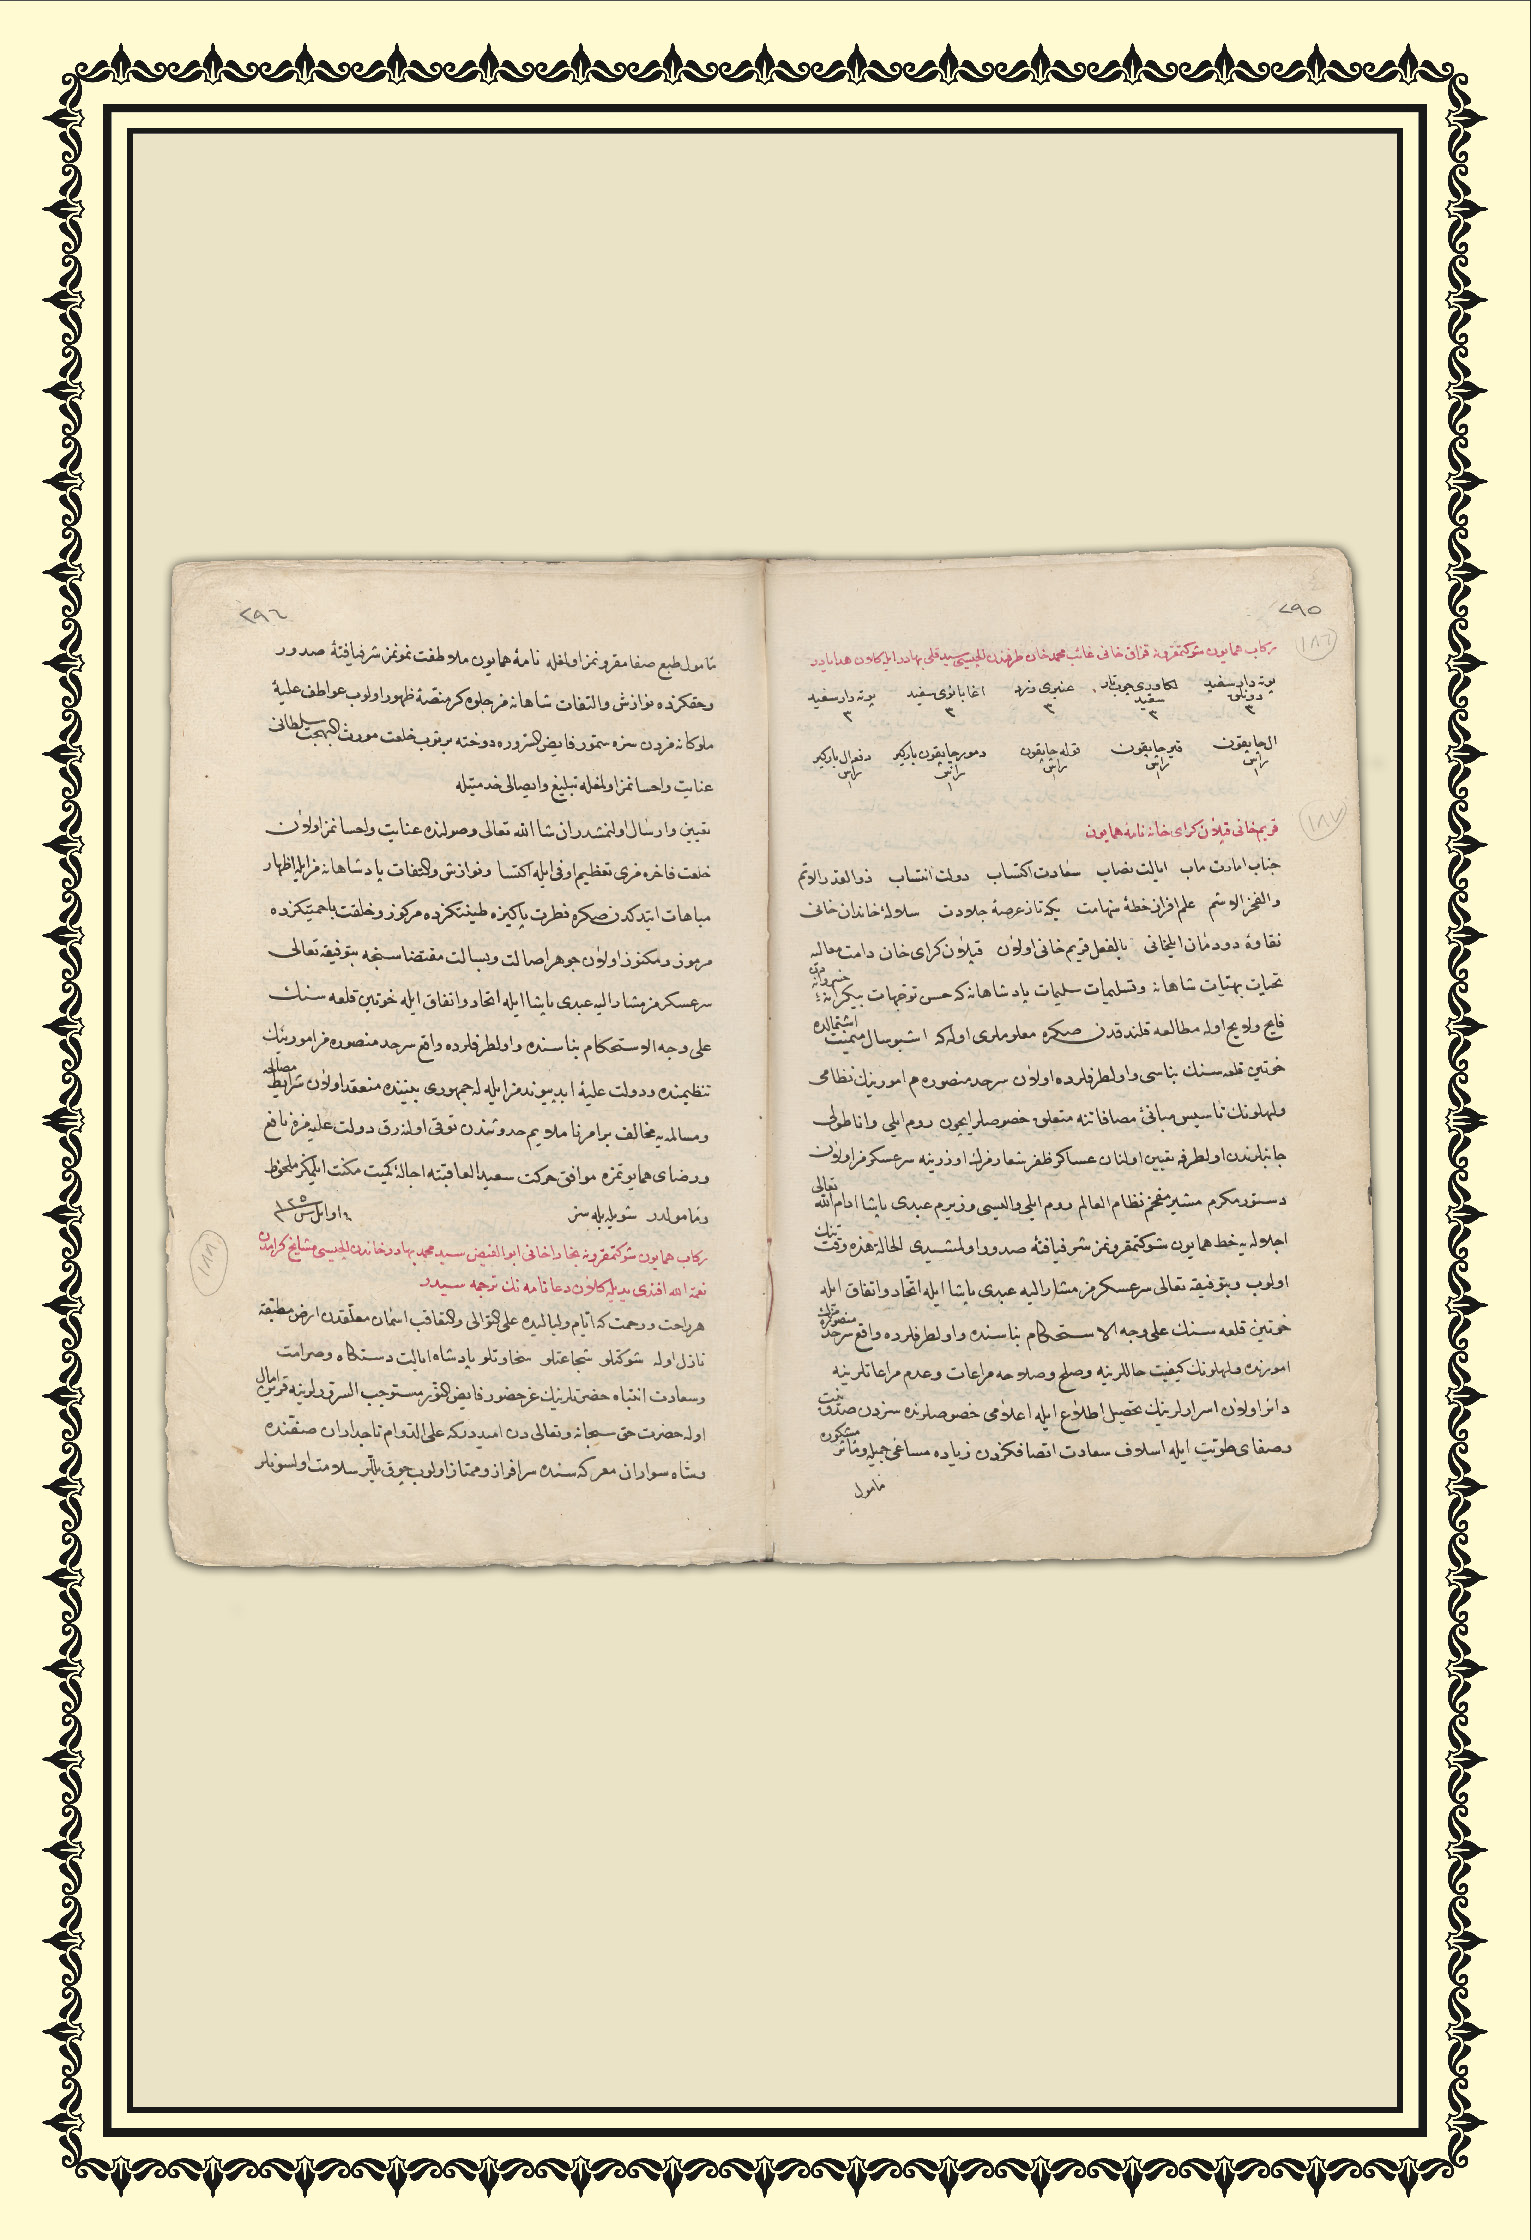 ٢٩٥
١٨٦
ركاب همايون شوكتمقرونه قزاق خانى غائب محمد خان طرفندن ايلچيسى سيد قلى بهادر ايله كلان هدايادر
بوته دار سفيد دونلق ٣
لكاورى چوبتار سفيد ٣
عنبرى ٣
اغابانوى سفيد ٣
بوته دار سفيد ٣
ال چابقون راس ١
قير چابقون راس ١
قوله چابقون راس ١
دمور چابقون باركير راس ١
ال باركير راس ١
١٨٧
قريم خانى قپلان كراى خانه نامۀ همايون
جناب امارت مآب ايالت نصاب سعادت اكتساب دولت انتساب ذو القدر الاتم
والفخر الاشم علم افراز خطۀ شهامت يكه تاز عرصۀ جلادت سلالۀ خاندان خانى
نقاوۀ دودمان ايلخانى بالفعل قريم خانى اولان قپلان كراى خان دامت معاليه
تحيات بهيات شاهانه وتسليمات سليمات پادشاهانه كه حسن توجهات بيكرانۀ خسروانه مزدن
فايح ولايح اوله مطالعه قلندقدن صكره معلوملرى اوله كه اشبو سال ميمنت اشتمالده
خوتين قلعه سنك بناسى واولطرفلرده اولان سرحد منصوره م امورينك نظامى
ولهلونك تأسيس مبانئ مصافاتنه متعلق خصوصلر ايچون روم ايلى واناطولى
جانبلرندن اولطرفه تعيين اولنان عساكر ظفر شعارمزك اوزرينه سرعسكرمز اولان
دستور مكرم مشير مفخم نظام العالم روم ايلى واليسى وزيرم عبدى پاشا ادام الله تعالى
اجلاله يه خط همايون شوكتمقرونمز شرفيافتۀ صدور اولمشيدى الحالة هذه وقتنك
اولوب وبتوفيقه تعالى سرعسكرمز مشار اليه عبدى پاشا ايله اتحاد واتفاق ايله
خوتين قلعه سنك على وجه الاستحكام بناسنده واولطرفلرده واقع سرحد منصوره مزك
امورنده ولهلونك كيفيت حاللرينه وصلح وصلاحه مراعات وعدم مراعاتلرينه
دائر اولان اسرارلرينك تحصيل اطلاع ايله اعلامى خصوصلرنده سزدن صدق نيت
وصفاى طويت ايله اسلاف سعادت اتصافكزدن زياده مساعئ جميله ومآثر مشكوره
مأمول
٢٩٦
مأمول طبع صفا مقرونمز اولمغله نامۀ همايون ملاطفت نمونمز شرفيافتۀ صدور
وحقكزده نوازش والتفات شاهانه مز جلوه كر منصۀ ظهور اولوب عواطف عليۀ
ملوكانه مزدن سزه سمور فايض السروره دوخته بر ثوب خلعت مورث البهجت سلطانى
عنايت واحسانمز اولمغله تبليغ وايصالى خدمتيله
تعيين وارسال اولنمشدر ان شا الله تعالى وصولنده عنايت واحسانمز اولان
خلعت فاخره مزى تعظيم اوفى ايله اكتسا ونوازش والتفات پادشاهانه مز ايله اظهار
مباهات ايتدكدن صكره فطرت پاكيزه طينتكزده مركوز وخلقت باحميتكزده
مرموز ومكنوز اولان جوهر اصالت وبسالت مقتضاسنجه بتوفيقه تعالى
سرعسكرمز مشار اليه عبدى پاشا ايله اتحاد واتفاق ايله خوتين قلعه سنك
على وجه الاستحكام بناسنده واولطرفلرده واقع سرحد منصوره مز امورينك
تنظيمنده ودولت عليۀ ابد پيوندمز ايله له جمهورى بيننده منعقد اولان شرايط مصالحه
ومسالمه يه مخالف بر امر ناملايم حدوثندن توقى اولنه رق دولت عليه مزه نافع
ورضاى همايونمزه موافق حركت سعيد العاقبته اجالۀ كميت مكنت ايلمكز ملحوظ
ومأمولدر شويله بيله سز
فى اوايل س ١١٢٥
١٨٨
ركاب همايون شوكتمقرونه بخارا خانى ابو الفيض سيد محمد بهادر خاندن ايلچيسى مشايخ كرامدن
نعمة الله افندى يديله كلان دعانامه نك ترجمه سيدر
هر راحت ورحمت كه ايام ولياليده على التوالى والتعاقب اسمان معلقدن ارض مطبقه
نازل اوله شوكتلو شجاعتلو سخاوتلو پادشاه ايالت دستكاه وصرامت
وسعادت انتباه حضرتلرينك عز حضور فايض النور مستوجب السرورلرينه قرين امال
اوله حضرت حق سبحانه وتعالى دن اميددركه على الدوام تاجداران صفنده
وشاه سواران معركه سنده سرافراز وممتاز اولوب چوق ييللر سلامت اولسونلر